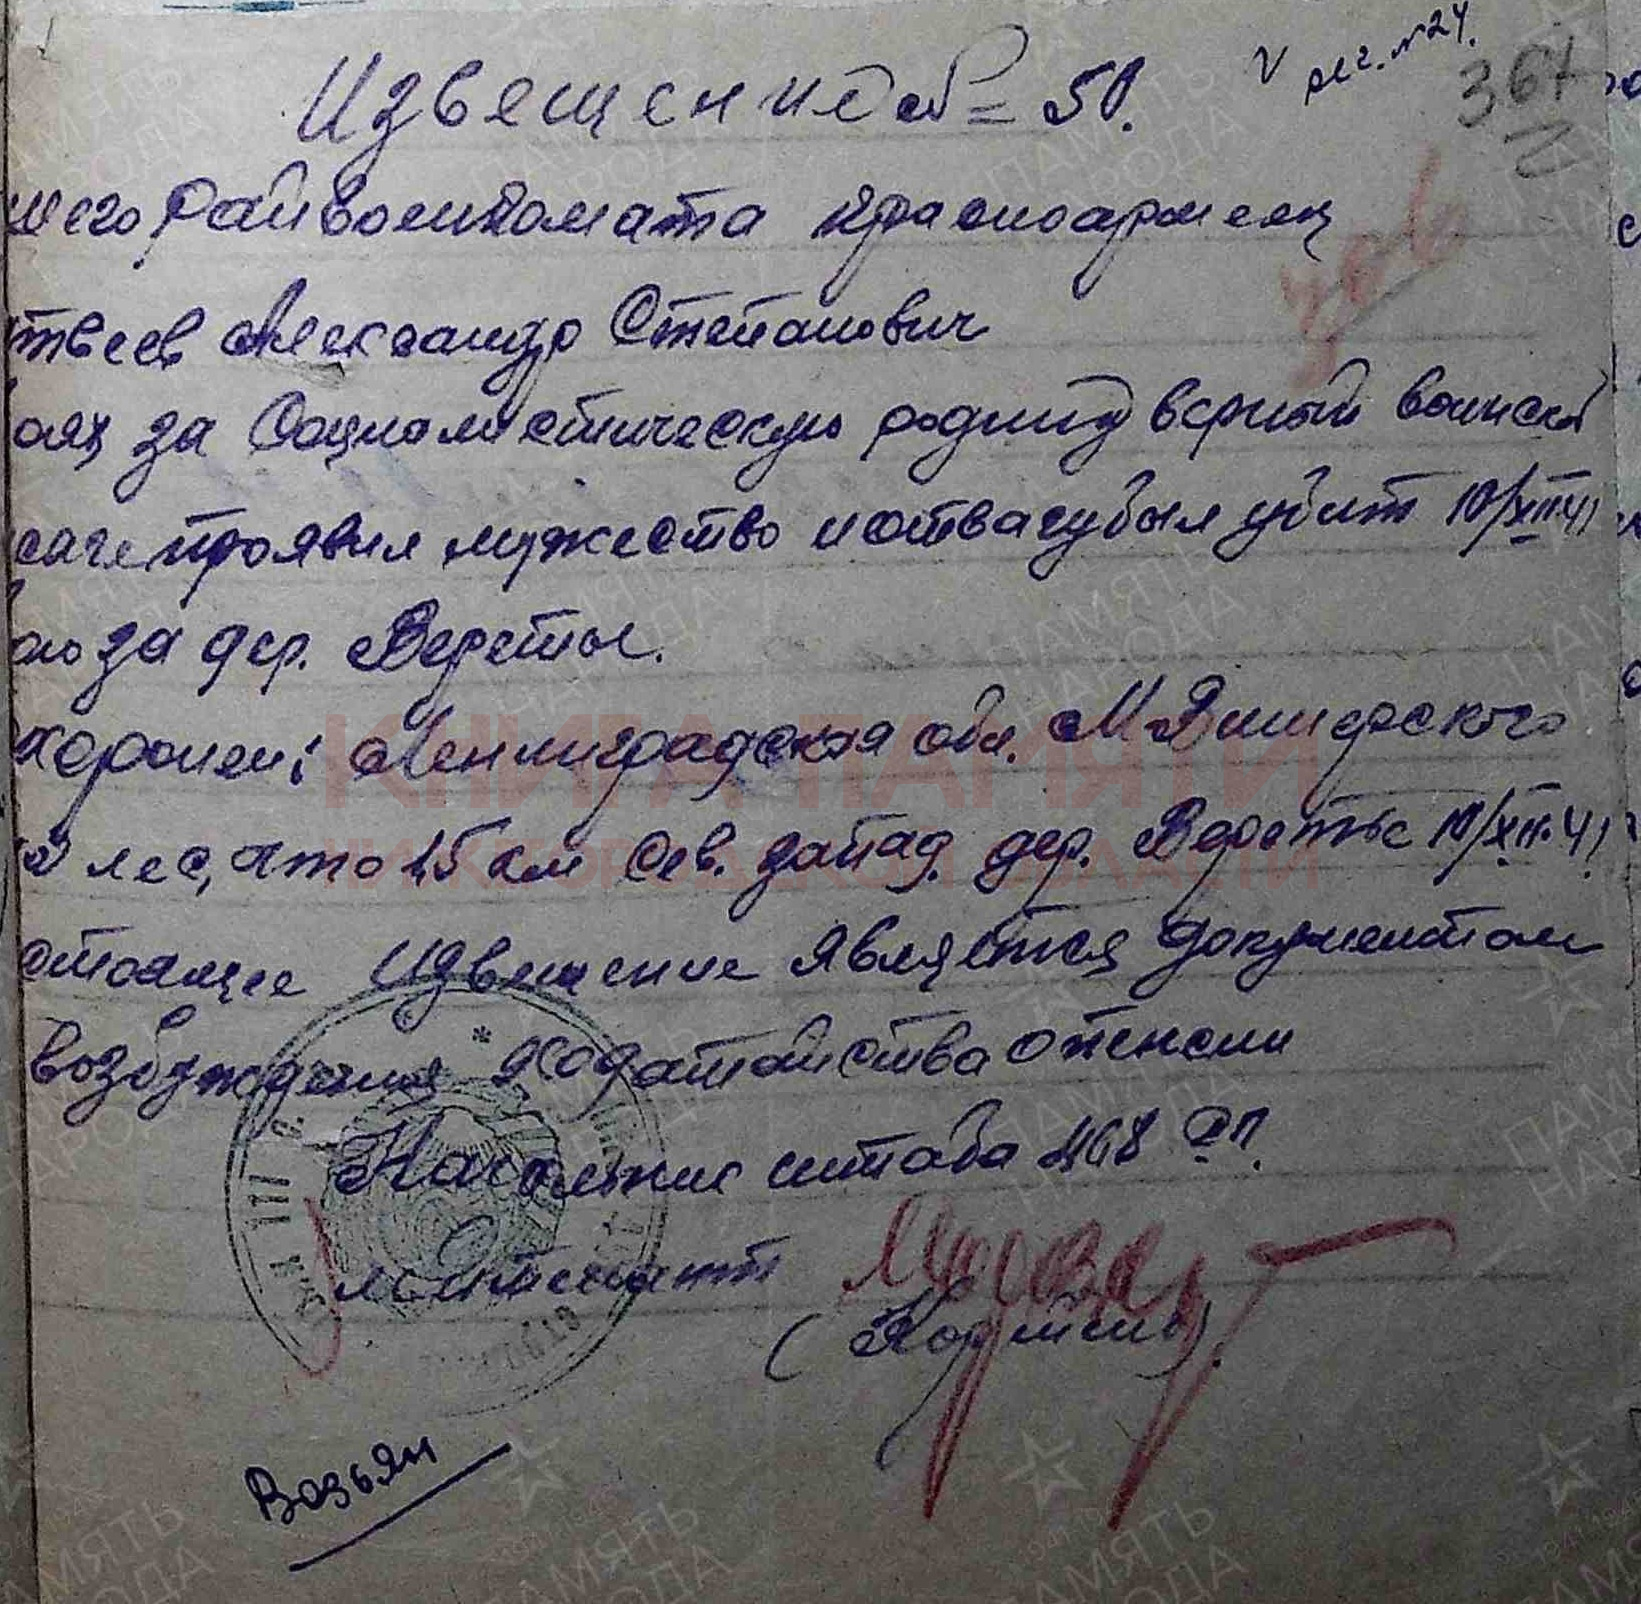 V рег. №24.
367
Извещение № 50.
шего Райвоенкомата красноармеец
твеев Александр Степанович
оях за Социалистическую родину верный воинской
сяге проявил мужество и отвагу был убит 10/XII 41
ою за дер. Веретье.
хоронен: Ленинградская обл. М-Вишерского
лес, что 1,5 км Сев. запад. дер. Веретье 10/XII. 41
стоящее Извещение является документом
возбуждения ходатайства о пенсии
Начальник штаба 1168 сп.
лейтенант
Возьян
КНИГА ПАМЯТИ
НИЖЕГОРОДСКОЙ ОБЛАСТИ
ПАМЯТЬ НАРОДА